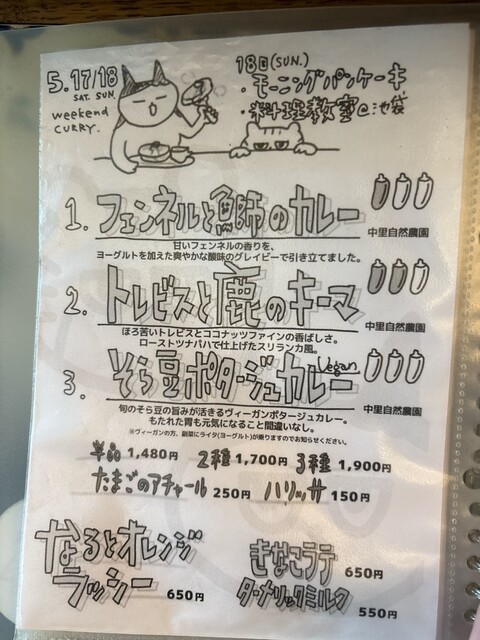 5.17/18
SAT. SUN.
weekend
CURRY.
18日(SUN.)
・モーニングパンケーキ
・料理教室@池袋
1. フェンネルと鰤のカレー
中里自然農園
甘いフェンネルの香りを、
ヨーグルトを加えた爽やかな酸味のグレイビーで引き立てました。
2. トレビスと鹿のキーマ
中里自然農園
ほろ苦いトレビスとココナッツファインの香ばしさ。
ローストツナパハで仕上げたスリランカ風。
3. そら豆ポタージュカレー Vegan
中里自然農園
旬のそら豆の旨みが活きるヴィーガンポタージュカレー。
もたれた胃も元気になること間違いなし。
※ヴィーガンの方、副菜にライタ(ヨーグルト)が乗りますのでお知らせください。
単品 1,480円 2種 1,700円 3種 1,900円
たまごのアチャール 250円 ハリッサ 150円
なるとオレンジ
ラッシー 650円
きなこラテ 650円
ターメリックミルク 550円